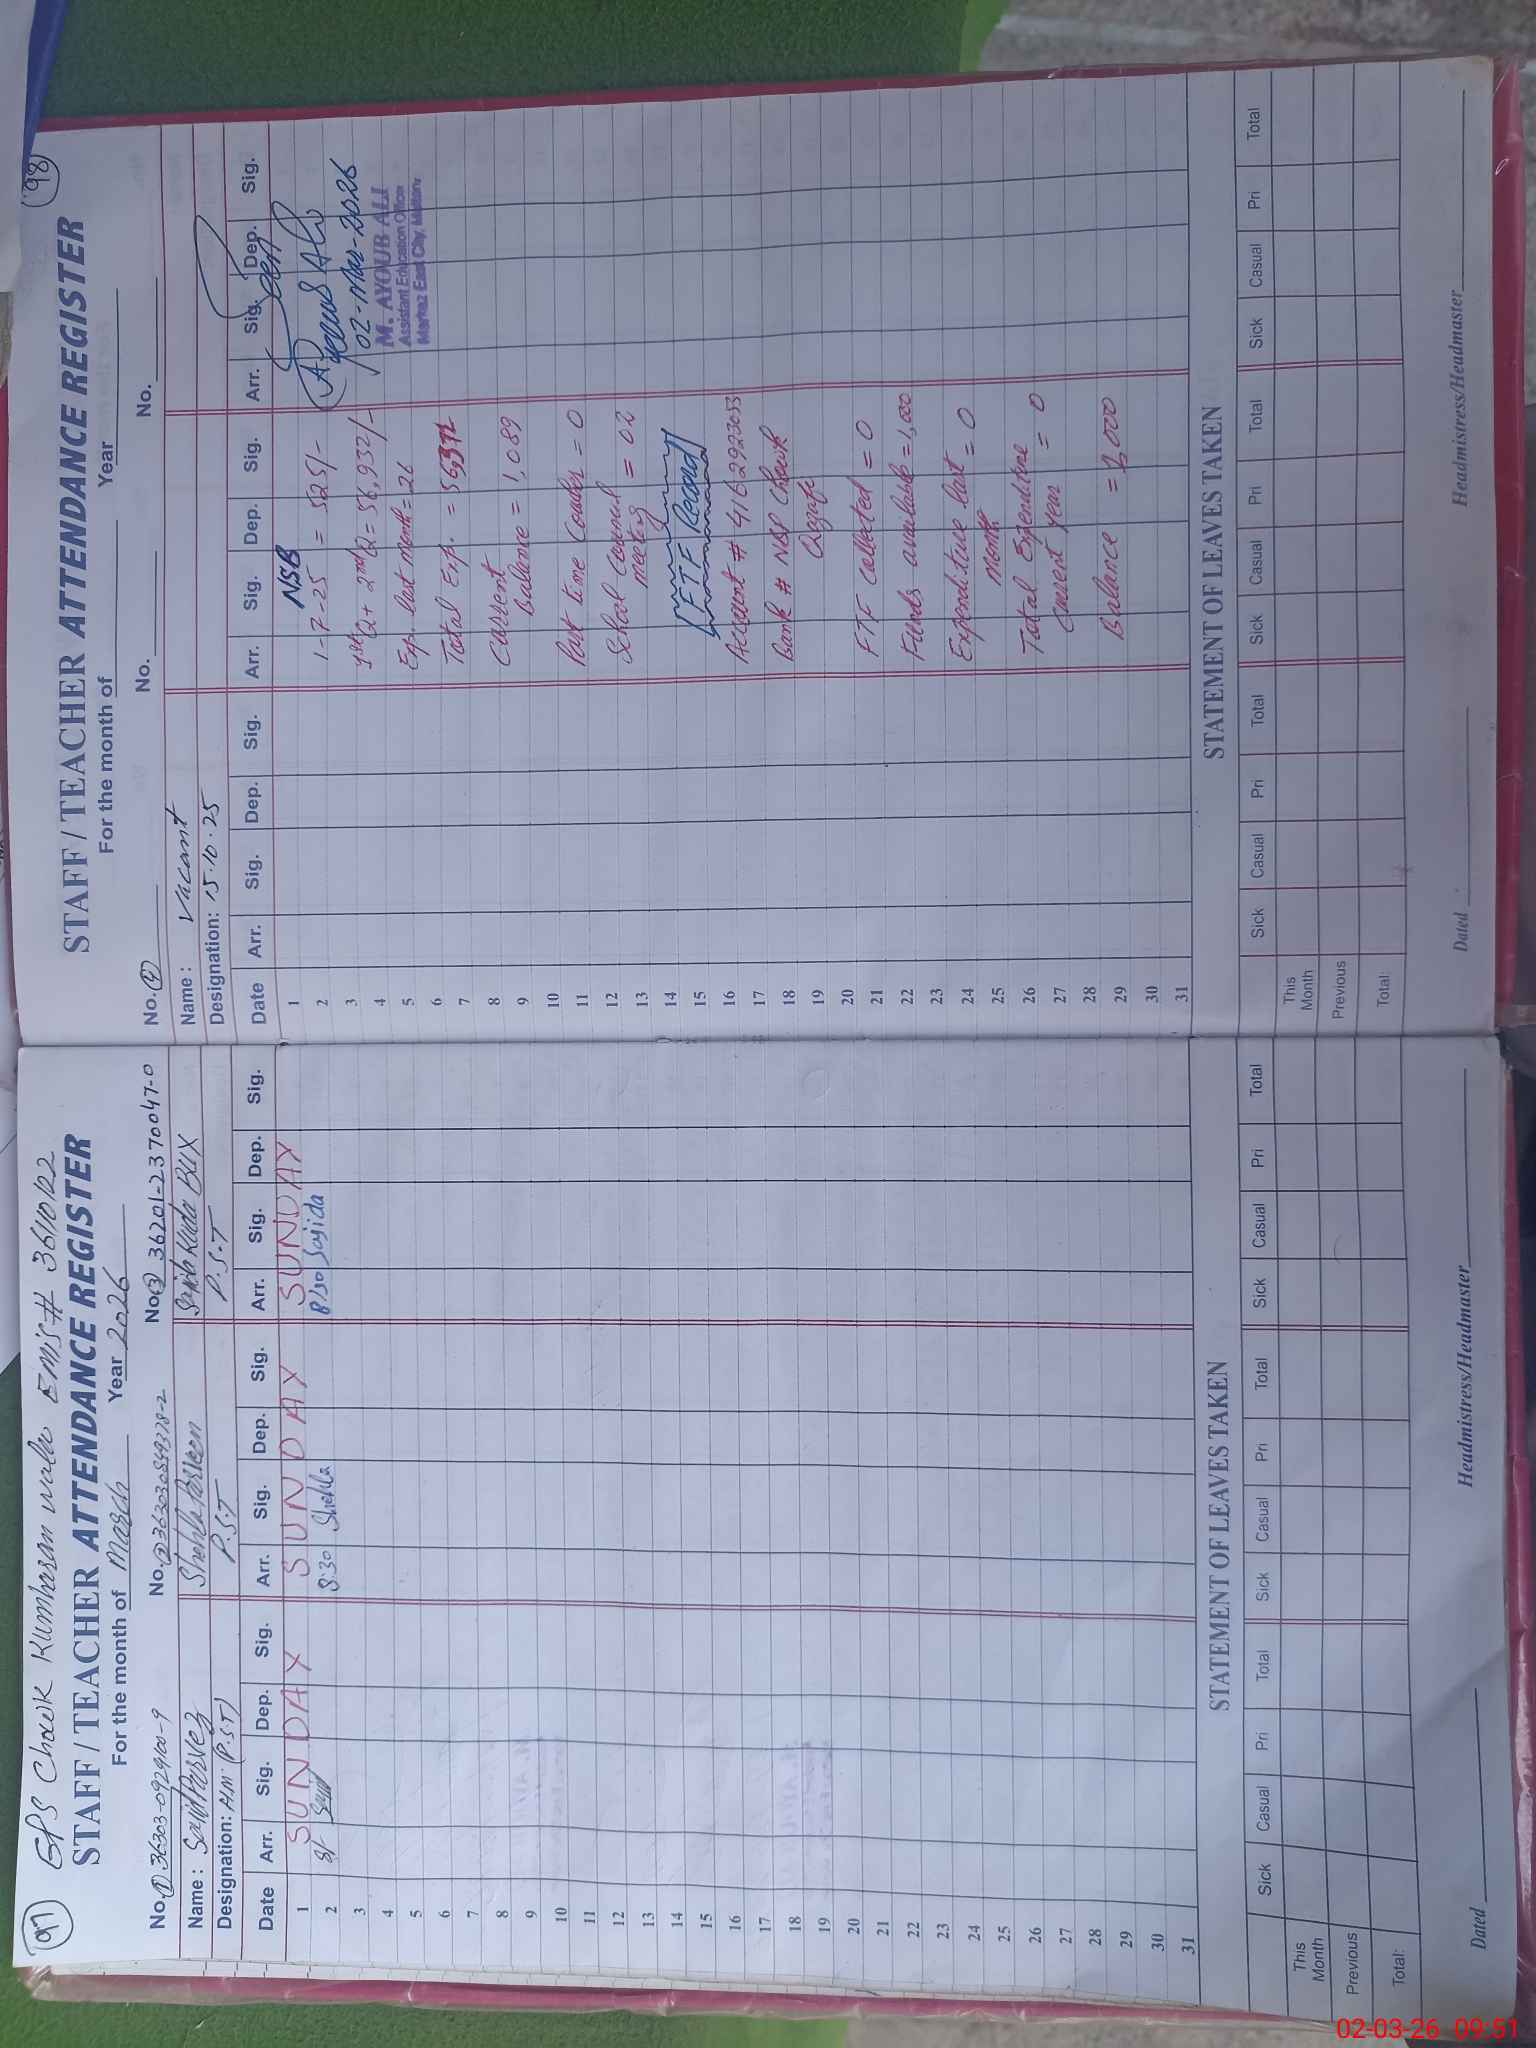 97
GPS Chowk Kumharan wala EMIS # 36110122
STAFF / TEACHER ATTENDANCE REGISTER
For the month of March Year 2026
No. 1 36303-0929100-9 No. 2 363030549378-2 No. 3 36201-2370047-0
Name : Said Pervez Shehla Parveen Sajida Khuda BUX
Designation: H.M. (P.S.T) P.S.T P.S.T
Date Arr. Sig. Dep. Sig. Arr. Sig. Dep. Sig. Arr. Sig. Dep. Sig.
1 SUNDAY SUNDAY SUNDAY
2 8/ Said 8:30 Shehla 8/30 Sajida
3
4
5
6
7
8
9
10
11
12
13
14
15
16
17
18
19
20
21
22
23
24
25
26
27
28
29
30
31
STATEMENT OF LEAVES TAKEN
Sick Casual Pri Total Sick Casual Pri Total Sick Casual Pri Total
This Month
Previous
Total:
Dated Headmistress/Headmaster
98
STAFF / TEACHER ATTENDANCE REGISTER
For the month of Year
No. 4 No. No.
Name : Vacant
Designation: 15.10.25
Date Arr. Sig. Dep. Sig. Arr. Sig. Dep. Sig. Arr. Sig. Dep. Sig.
1
2
3
4
5
6
7
8
9
10
11
12
13
14
15
16
17
18
19
20
21
22
23
24
25
26
27
28
29
30
31
NSB
1-7-25 = 525/-
1st Q + 2nd Q = 56,932/-
Exp. last month = 26
Total Exp. = 56,372
Current
Balance = 1,089
Part time Coucher = 0
School Council
meeting = 02
FTF Record
Account # 4162923053
Bank # NBP Chowk
FTF collected = 0
Funds available = 1,000
Expenditure last
Month = 0
Total Expenditure
Current year = 0
Balance = 1,000
Seen
Ayoub Ali
02-Mar-2026
M. AYOUB ALI
Assistant Education Officer
Markaz East City, Multan
STATEMENT OF LEAVES TAKEN
Sick Casual Pri Total Sick Casual Pri Total Sick Casual Pri Total
This Month
Previous
Total:
Dated Headmistress/Headmaster
02-03-26 09:51